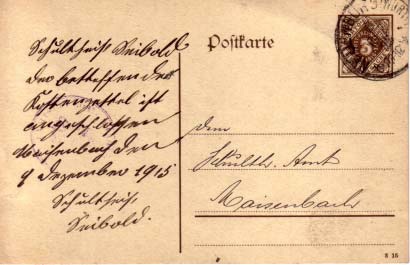 Postkarte
Schultheis Seibold
der betreffende
Kostenzettel ist
angeschlossen
Maisenbach den
9 Dezember 1915
Schultheis
Seibold.
dem
Schulth. Amt
Maisenbach
S 15